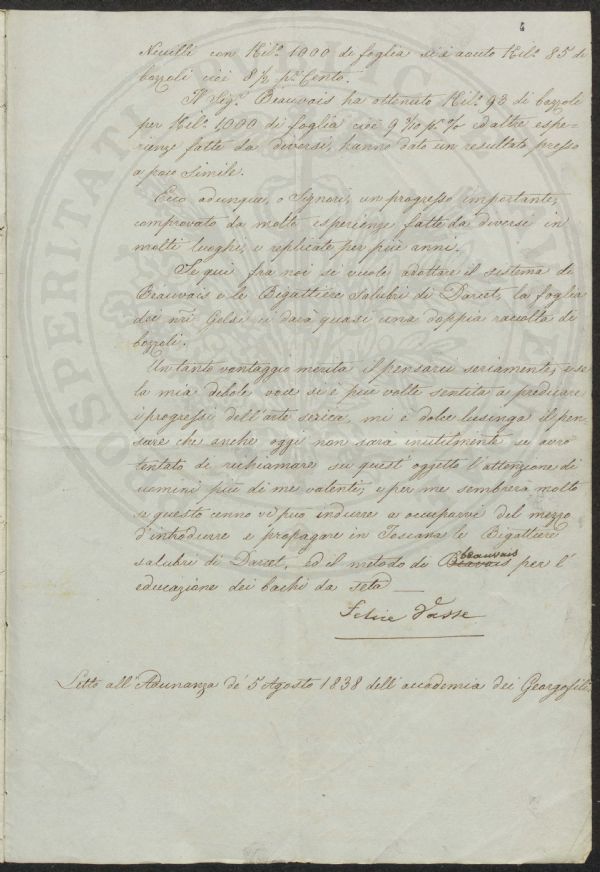 4
Neuilli con Kil.ⁱ 1000 di foglia si è avuto Kil.ⁱ 85 di
bozzoli cioè 8½ p. Cento.
Il Sig.ʳ Beauvais ha ottenuto Kil.ⁱ 93 di bozzoli
per Kil.ⁱ 1000 di foglia cioè 9 3/10 p. % ed altre espe-
rienze fatte da diversi, hanno dato un resultato presso
a poco simile.
Ecco adunque, o Signori, un progresso importante,
comprovato da molte esperienze fatte da diversi in
molti luoghi, e replicate per più anni.
Se qui fra noi si vuole adottare il sistema di
Beauvais e le Bigattiere salubri di Darcet, la foglia
dei nri Gelsi ci darà quasi una doppia raccolta di
bozzoli.
Un tanto vantaggio merita il pensarci seriamente, e se
la mia debole voce si è più volte sentita a predicare
i progressi dell'arte serica, mi è dolce lusinga il pen-
sare che anche oggi non sarà inutilmente se avrò
tentato di richiamare su quest'oggetto l'attenzione di
uomini più di me valenti, e per me sembrerà molto
se questo cenno vi può indurre a occuparvi del mezzo
d'introdurre e propagare in Toscana le Bigattiere
salubri di Darcet, ed il metodo di Beauvais per l'
educazione dei bachi da seta
Felice Vasse
Letto all'Adunanza de' 5 Agosto 1838 dell'accademia dei Georgofili
PROSPERITATI PUBLICAE